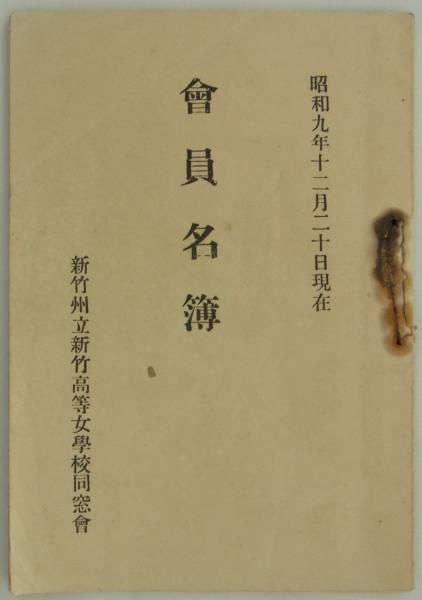 昭和九年十二月二十日現在
會員名簿
新竹州立新竹高等女學校同窓會